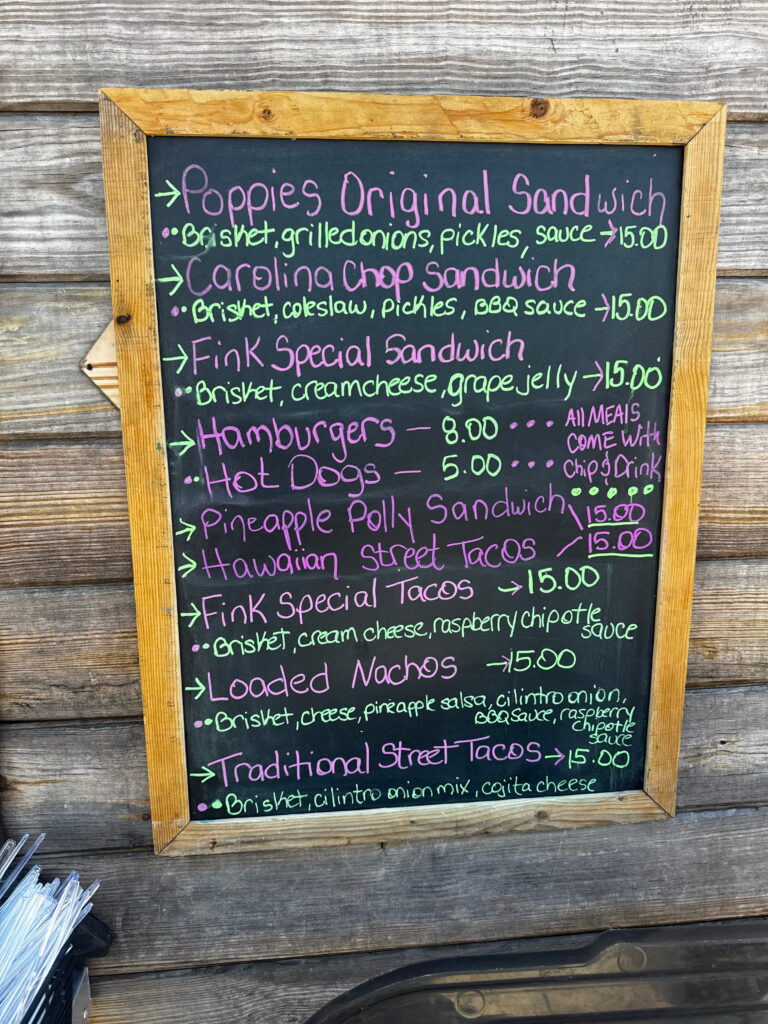 →Poppies Original Sandwich
• Brisket, grilled onions, pickles, sauce →15.00
→Carolina Chop Sandwich
• Brisket, coleslaw, pickles, BBQ sauce →15.00
→Fink Special Sandwich
•• Brisket, creamcheese, grape jelly →15.00
→Hamburgers — 8.00 • • •
•• Hot Dogs — 5.00 • • •
All MEALS
COME With
Chip & Drink
→Pineapple Polly Sandwich \ 15.00
→Hawaiian Street Tacos / 15.00
→Fink Special Tacos →15.00
•• Brisket, cream cheese, raspberry chipotle
sauce
→Loaded Nachos →15.00
•• Brisket, cheese, pineapple salsa, cilintro onion,
BBQ sauce, raspberry
chipotle
sauce
→Traditional Street Tacos →15.00
•• Brisket, cilintro onion mix, cojita cheese